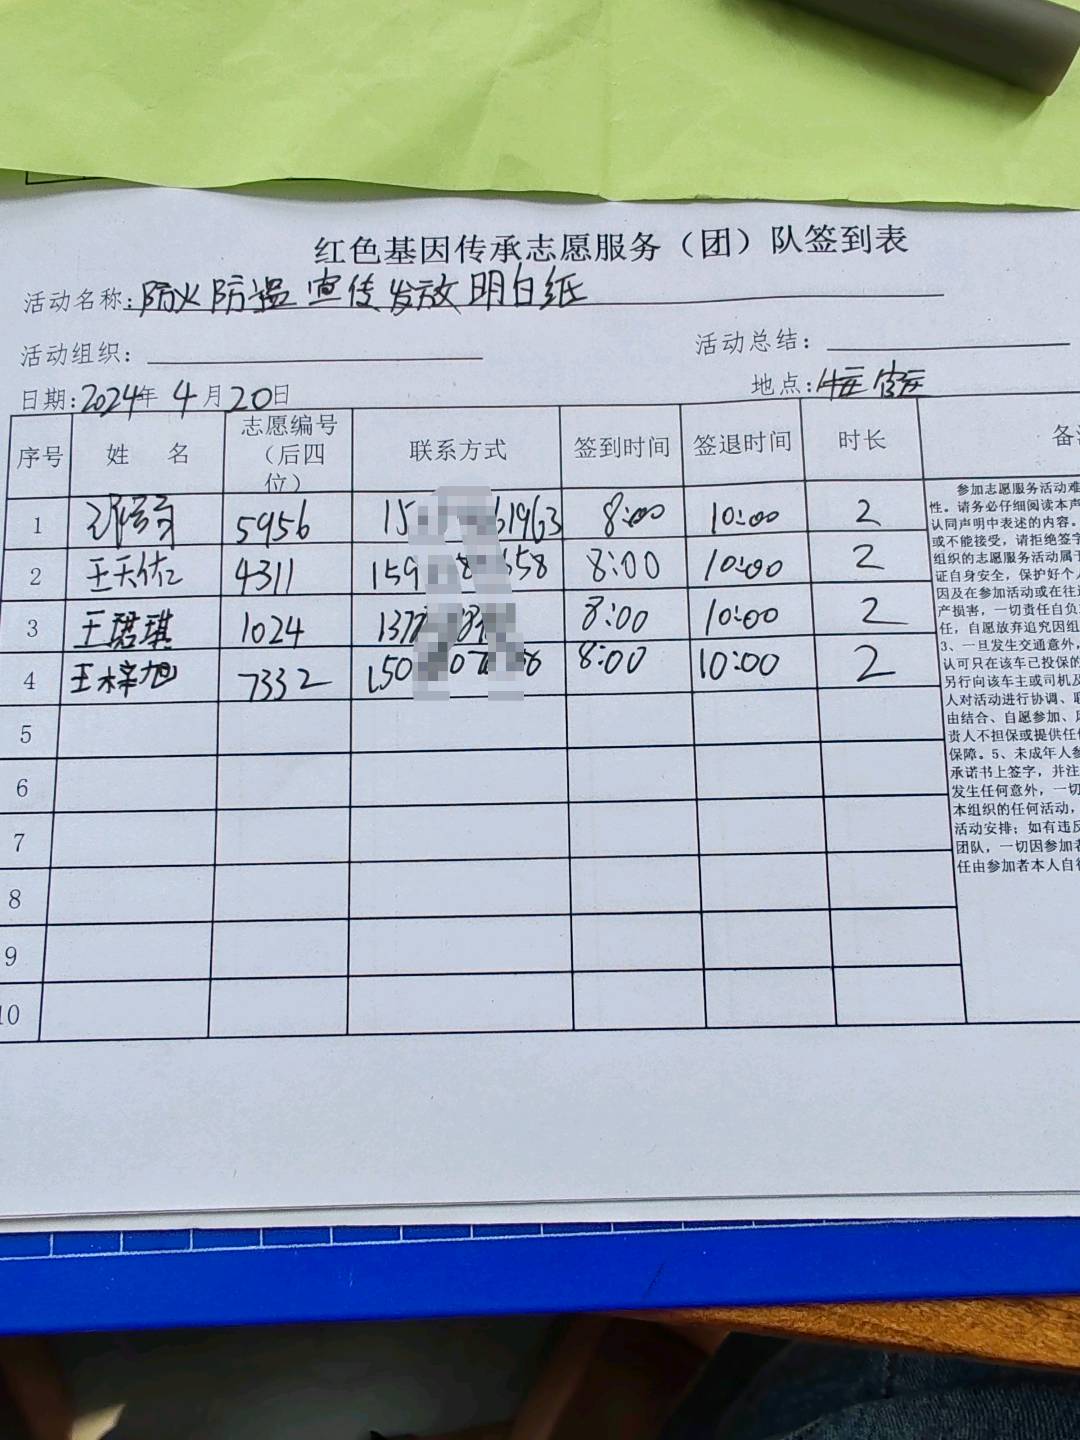 红色基因传承志愿服务（团）队签到表
活动名称：防火防溺宣传发放明白纸
活动组织：
活动总结：
日期：2024年4月20日
地点：
序号 姓 名 志愿编号（后四位） 联系方式 签到时间 签退时间 时长 备
1 5956 15 61963 8:00 10:00 2
2 王天佑 4311 159 8 658 8:00 10:00 2
3 王珺琪 1024 137 8:00 10:00 2
4 王梓旭 7332 150 07 8 8:00 10:00 2
5
6
7
8
9
10
参加志愿服务活动难
性。请务必仔细阅读本声
认同声明中表述的内容。
或不能接受，请拒绝签字
组织的志愿服务活动属于
证自身安全，保护好个人
因及在参加活动或在往返
产损害，一切责任自负
任，自愿放弃追究因组
3、一旦发生交通意外，
认可只在该车已投保的
另行向该车主或司机及
人对活动进行协调、联
由结合、自愿参加、
责人不担保或提供任何
保障。5、未成年人参
承诺书上签字，并注
发生任何意外，一切
本组织的任何活动，
活动安排；如有违反
团队，一切因参加者
任由参加者本人自行